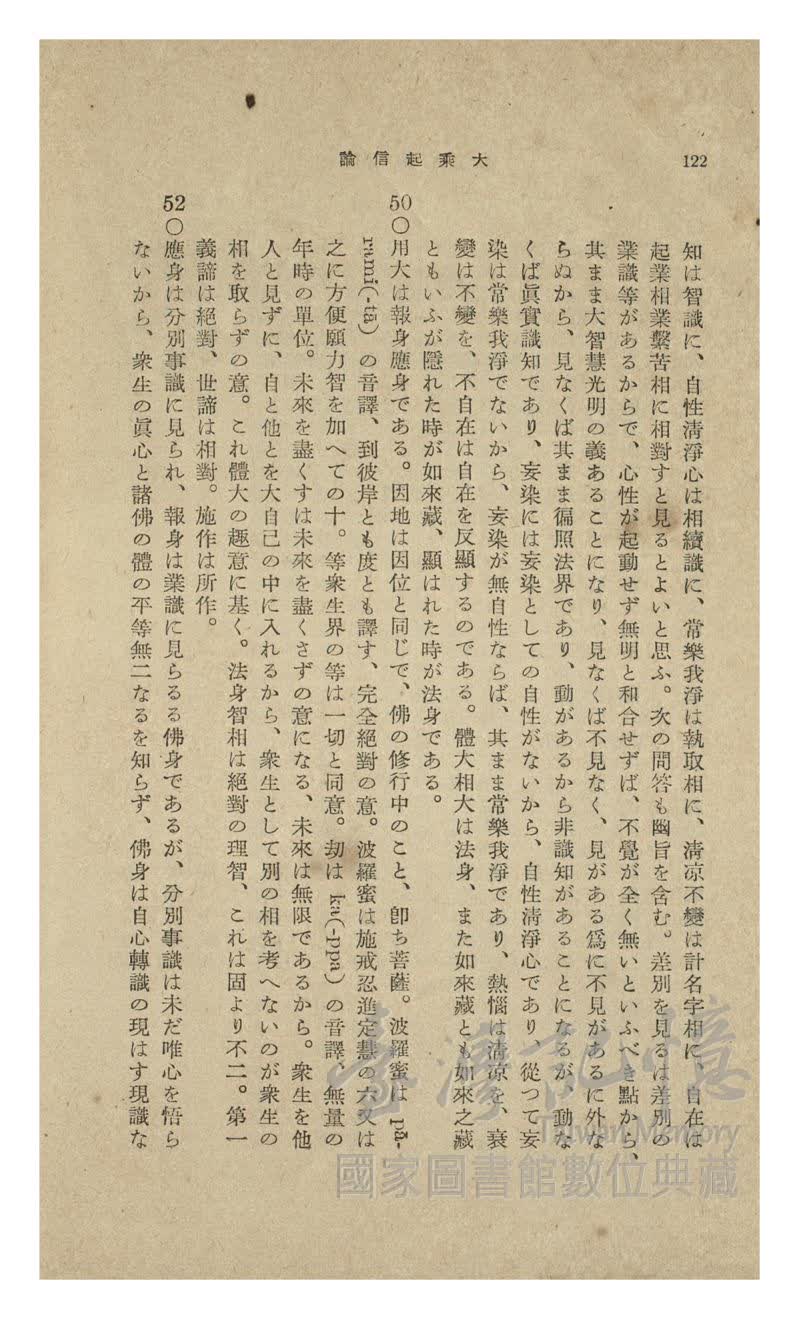 122
大乘起信論
知は智識に、自性淸淨心は相續識に、常樂我淨は執取相に、淸凉不變は計名字相に、自在は
起業相業繫苦相に相對すと見るとよいと思ふ。次の問答も幽旨を含む。差別を見るは差別の
業識等があるからで、心性が起動せず無明と和合せずば、不覺が全く無いといふべき點から、
其まま大智慧光明の義あることになり、見なくば不見なく、見がある爲に不見があるに外な
らぬから、見なくば其まま徧照法界であり、動があるから非識知があることになるが、動な
くば眞實識知であり、妄染には妄染としての自性がないから、自性淸淨心であり、從つて妄
染は常樂我淨でないから、妄染が無自性ならば、其まま常樂我淨であり、熱惱は淸凉を、衰
變は不變を、不自在は自在を反顯するのである。體大相大は法身、また如來藏とも如來之藏
ともいふが隱れた時が如來藏、顯はれた時が法身である。
50○用大は報身應身である。因地は因位と同じで、佛の修行中のこと、卽ち菩薩。波羅蜜は pā-
rami(-tā) の音譯、到彼岸とも度とも譯す、完全絕對の意。波羅蜜は施戒忍進定慧の六又は
之に方便願力智を加へての十。等衆生界の等は一切と同意。劫は ka(-ppa) の音譯、無量の
年時の單位。未來を盡くすは未來を盡くさずの意になる、未來は無限であるから。衆生を他
人と見ずに、自と他とを大自己の中に入れるから、衆生として別の相を考へないのが衆生の
相を取らずの意。これ體大の趣意に基く。法身智相は絕對の理智、これは固より不二。第一
義諦は絕對、世諦は相對。施作は所作。
52○應身は分別事識に見られ、報身は業識に見らるる佛身であるが、分別事識は未だ唯心を悟ら
ないから、衆生の眞心と諸佛の體の平等無二なるを知らず、佛身は自心轉識の現はす現識な
臺灣記憶
Taiwan Memory
國家圖書館數位典藏